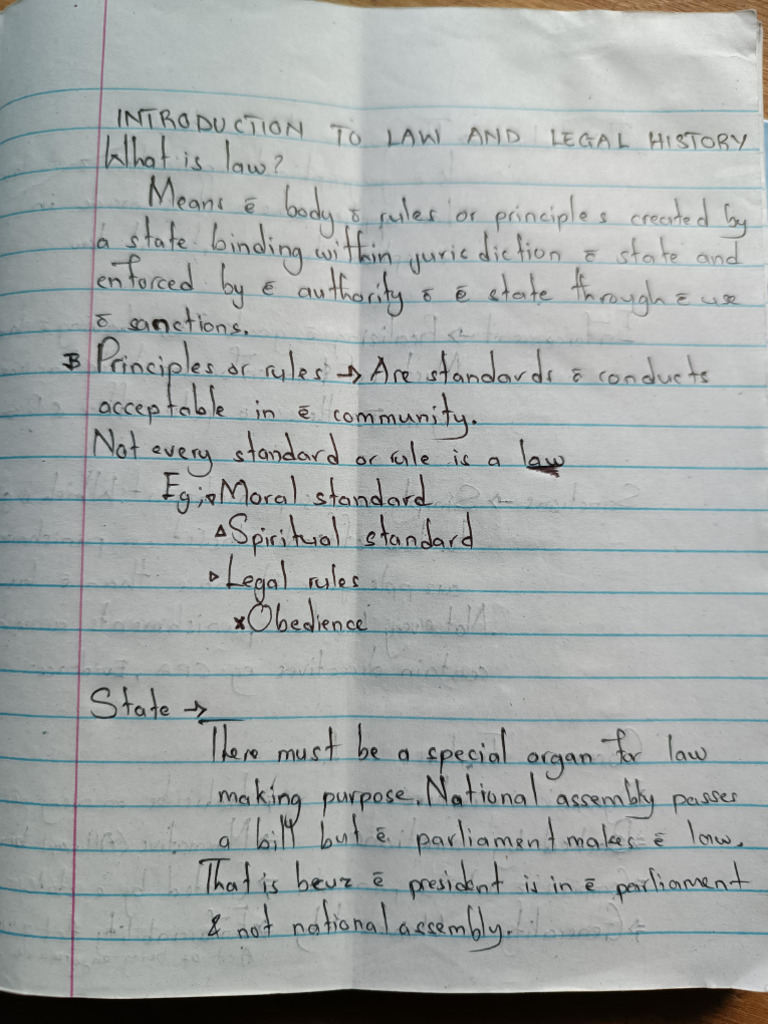 INTRODUCTION TO LAW AND LEGAL HISTORY
What is law?
Means ē body ō rules or principles created by
a state binding within juricdiction ō state and
enforced by ē authority ō ē state through ē use
ō sanctions.
Principles or rules → Are standards ō conducts
acceptable in ē community.
Not every standard or rule is a law
Eg; Moral standard
Spiritual standard
Legal rules
Obedience
State →
There must be a special organ for law
making purpose. National assembly passes
a bill but ē parliament makes ē law.
That is beuz ē president is in ē parliament
& not national assembly.